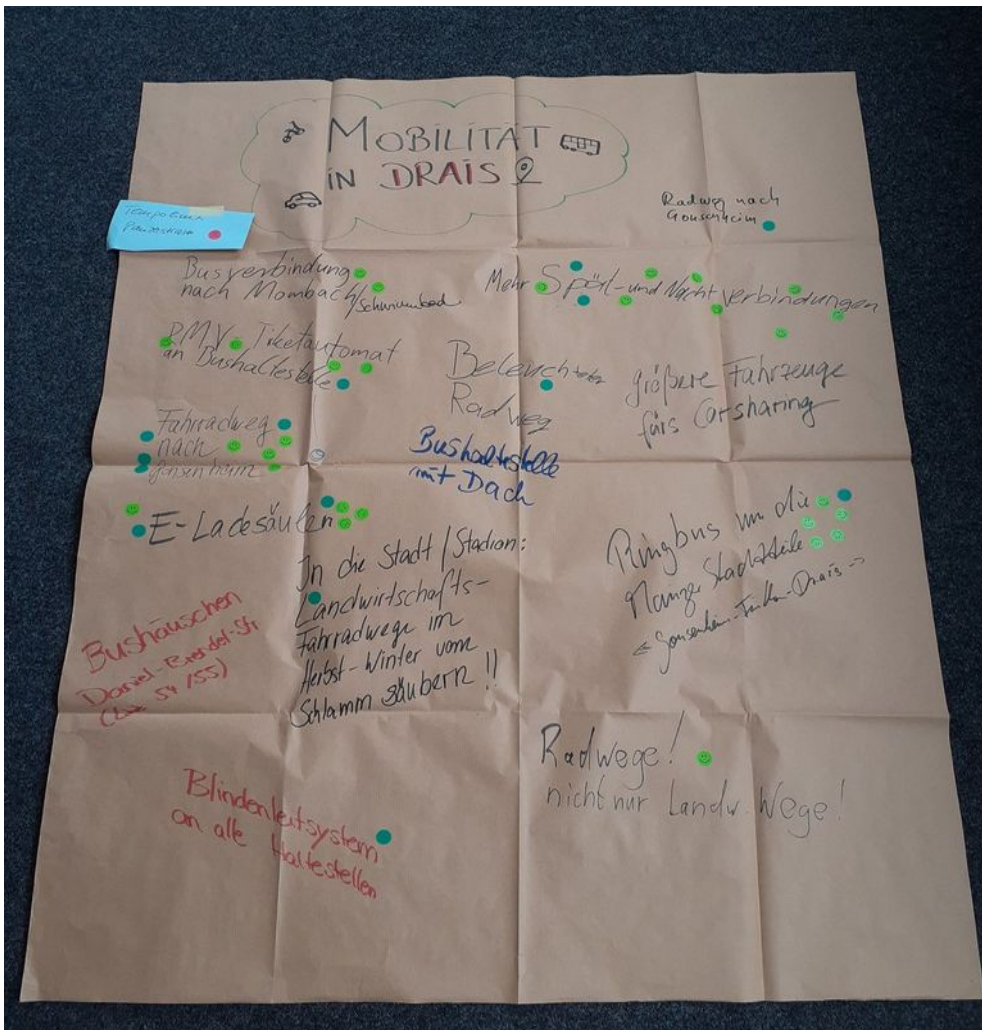 MOBILITÄT
IN DRAIS
Radweg nach
Gonsenheim
Busverbindung
nach Mombach/Schwimmbad
Mehr Spät- und Nachtverbindungen
RMV-Tiketautomat
an Bushaltestelle
Beleuchteter
Radweg
größere Fahrzeuge
fürs Carsharing
Fahrradweg
nach
Gonsenheim
Bushaltestelle
mit Dach
E-Ladesäulen
In die Stadt/Stadion:
Landwirtschafts-
Fahrradwege im
Herbst-Winter vom
Schlamm säubern!!
Ringbus um die
Mainzer Stadtteile
← Gonsenheim-Finthen-Drais →
Bushäuschen
Daniel-Brendel-Str
54/55)
Radwege!
nicht nur Landw. Wege!
Blindenleitsystem
an alle Haltestellen